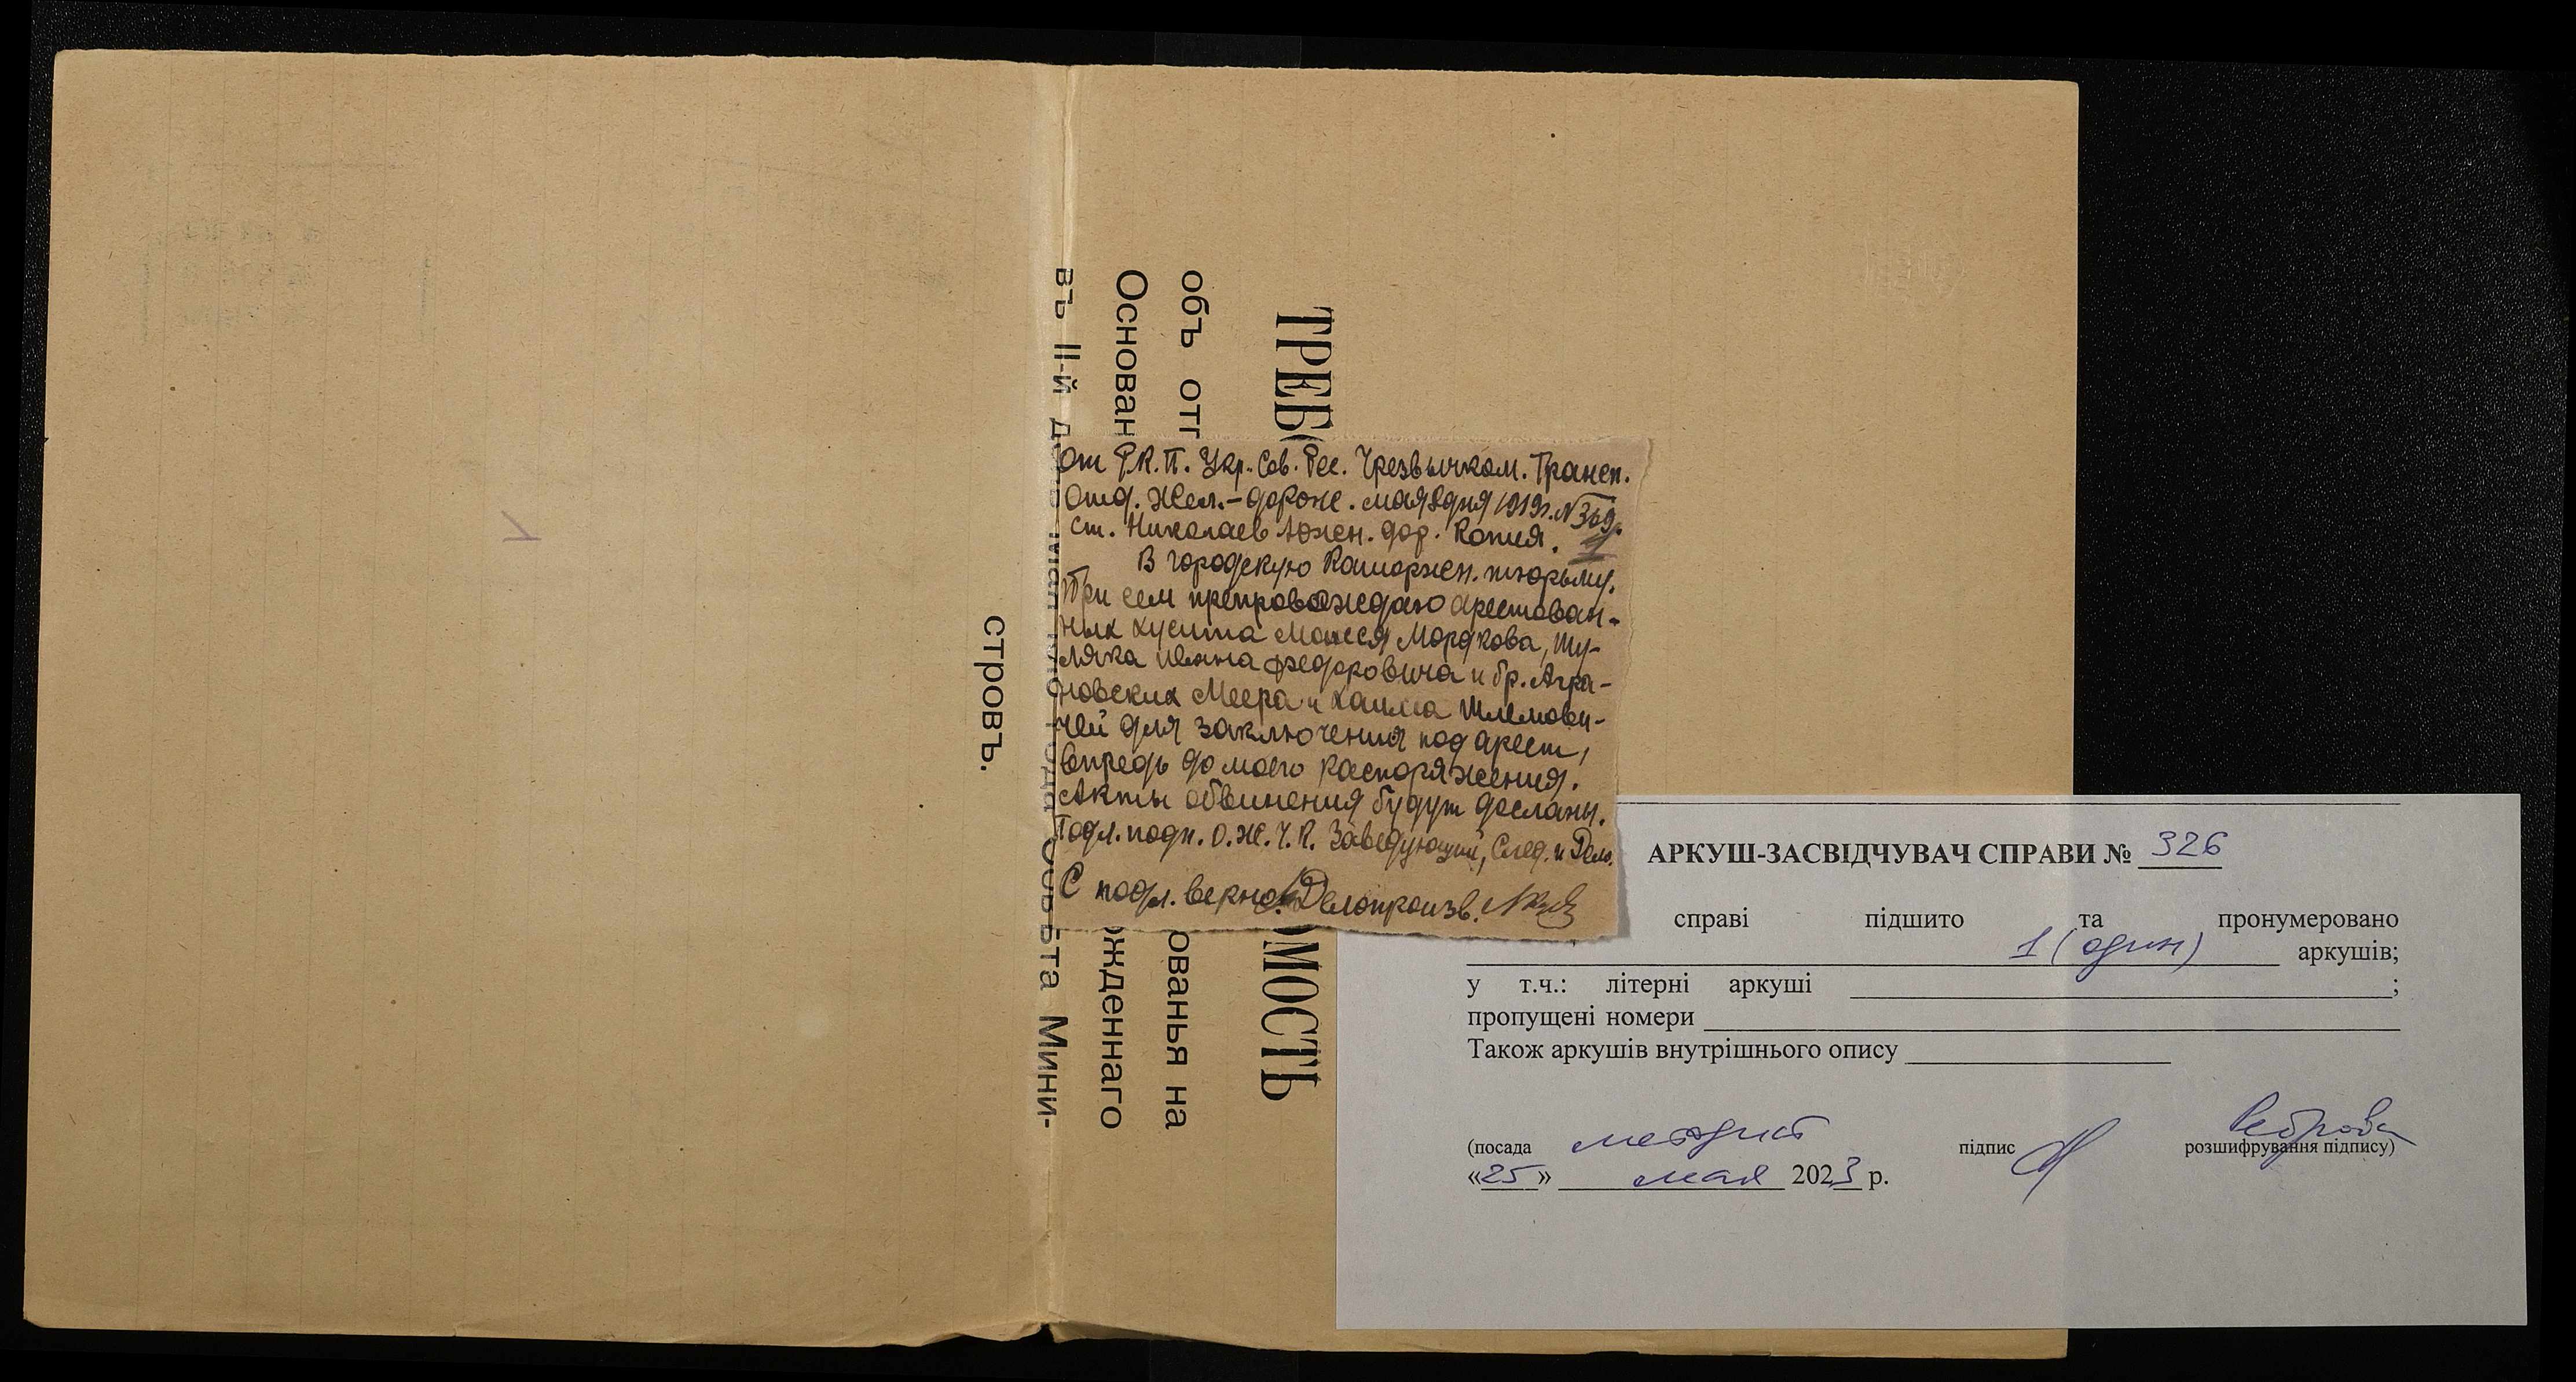 ТРЕБ
МОСТЬ
объ отп
ованья на
Основан
жденнаго
въ II-й
та Мини-
стровъ.
От Р.К.П. Укр. Сов. Рес. Чрезвычком. Трансп.
Отд. Жел.-дорож. мая 8 дня 1919 г. № 369.
ст. Николаев Южн. дор. Копия. 1
В городскую Каторжн. тюрьму.
При сем препровождаю арестован-
ных Хусита Моисея Мордкова, Шу-
ляка Ивана Федоровича и бр. Агра-
новских Меера и Хаима Шлемови-
чей для заключения под арест,
впредь до моего распоряжения.
Акты обвинения будут досланы.
Подл. подп. О.Ж.Ч.К. Заведующий, След. и Дело.
С подл. верно: Делопроизв.
АРКУШ-ЗАСВІДЧУВАЧ СПРАВИ № 326
справі підшито та пронумеровано
1 (один) аркушів;
у т.ч.: літерні аркуші ;
пропущені номери
Також аркушів внутрішнього опису
(посада методист підпис Реброва розшифрування підпису)
«25» мая 2023 р.